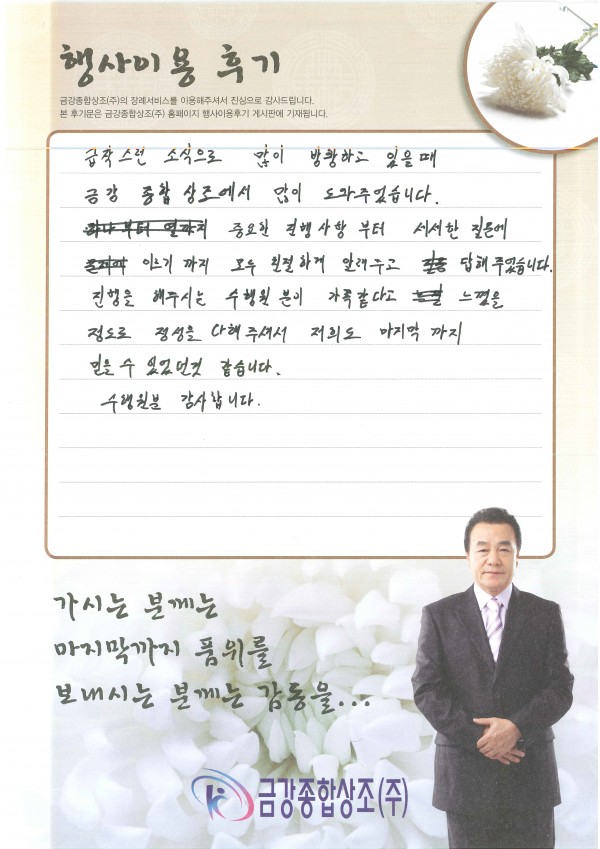 행사이용 후기
금강종합상조(주)의 장례서비스를 이용해주셔서 진심으로 감사드립니다.
본 후기문은 금강종합상조(주) 홈페이지 행사이용후기 게시판에 기재됩니다.
갑작스런 소식으로 많이 방황하고 있을때
금강 종합상조에서 많이 도와주었습니다.
하나부터 열까지 중요한 진행사항 부터 세세한 질문에
이르기 까지 모두 친절하게 알려주고 답해주었습니다.
진행을 해주시는 수행원분이 가족같다고 느꼈을
정도로 정성을 다해주셔서 저희도 마지막 까지
믿을 수 있었던것 같습니다.
수행원분 감사합니다.
가시는 분께는
마지막까지 품위를
보내시는 분께는 감동을...
금강종합상조(주)